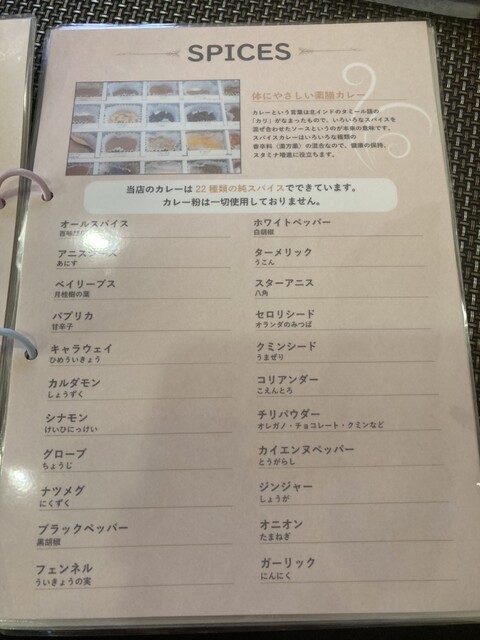 SPICES
体にやさしい薬膳カレー
カレーという言葉は北インドのタミール語の
「カリ」がなまったもので、いろいろなスパイスを
混ぜ合わせたソースというのが本来の意味です。
スパイスカレーはいろいろな種類の
香辛料（漢方薬）の混合なので、健康の保持、
スタミナ増進に役立ちます。
当店のカレーは 22 種類の純スパイスでできています。
カレー粉は一切使用しておりません。
オールスパイス
百味
アニス
あにす
ベイリーブス
月桂樹の葉
パプリカ
甘辛子
キャラウェイ
ひめういきょう
カルダモン
しょうずく
シナモン
けいひにっけい
グローブ
ちょうじ
ナツメグ
にくずく
ブラックペッパー
黒胡椒
フェンネル
ういきょうの実
ホワイトペッパー
白胡椒
ターメリック
うこん
スターアニス
八角
セロリシード
オランダのみつば
クミンシード
うまぜり
コリアンダー
こえんとろ
チリパウダー
オレガノ・チョコレート・クミンなど
カイエンヌペッパー
とうがらし
ジンジャー
しょうが
オニオン
たまねぎ
ガーリック
にんにく